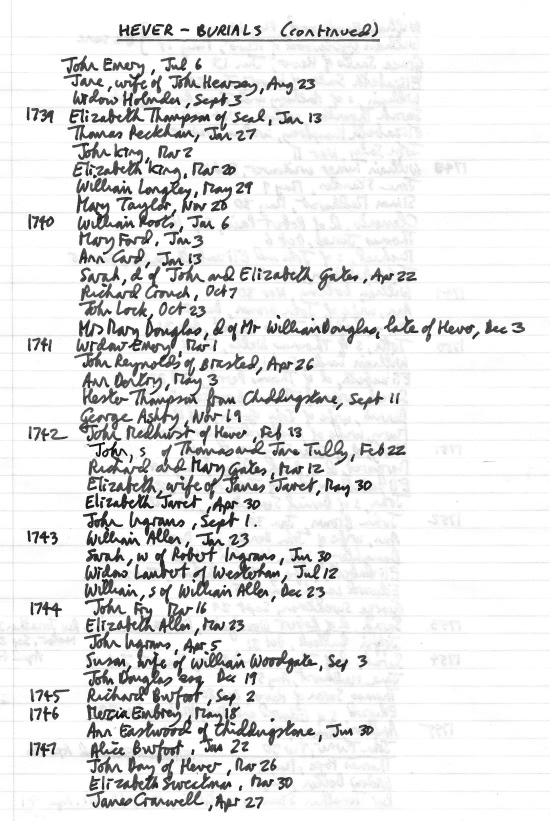 HEVER - BURIALS (continued)
John Emery, Jul 6
Jane, wife of John Hearsey, Aug 23
Widow Holmden, Sept 3
1739 Elizabeth Thompson of Seal, Jan 13
Thomas Peckham, Jan 27
John King, Mar 2
Elizabeth King, Mar 20
William Longley, May 29
Mary Taylor, Nov 20
1740 William Roots, Jan 6
Mary Ford, Jan 3
Ann Card, Jan 13
Sarah, d of John and Elizabeth Gates, Apr 22
Richard Crouch, Oct 7
John Lock, Oct 23
Mrs Mary Douglas, d of Mr William Douglas, late of Hever, Dec 3
1741 Widow Emery, Mar 1
John Reynolds of Brasted, Apr 26
Ann, May 3
Hester Thompson from Chiddingstone, Sept 11
George Ashby, Nov 19
1742 John Medhurst of Hever, Feb 13
John, s of Thomas and Jane Tully, Feb 22
Richard and Mary Gates, Mar 12
Elizabeth, wife of James Jaret, May 30
Elizabeth Jaret, Apr 30
John Ingrams, Sept 1.
1743 William Allen, Jan 23
Sarah, w of Robert Ingrams, Jun 30
Widow Lambert of Westerham, Jul 12
William, s of William Allen, Dec 23
1744 John Fry Mar 16
Elizabeth Allen, Mar 23
John Ingrams, Apr 5
Susan, wife of William Woodgate, Sep 3
John Douglas esq Dec 19
1745 Richard Burfoot, Sep 2
1746 Mercia Embrey, May 18
Ann Eastwood of Chiddingstone, Jun 30
1747 Alice Burfoot, Jan 22
John Day of Hever, Mar 26
Elizabeth Sweetman, Mar 30
James Cranwell, Apr 27